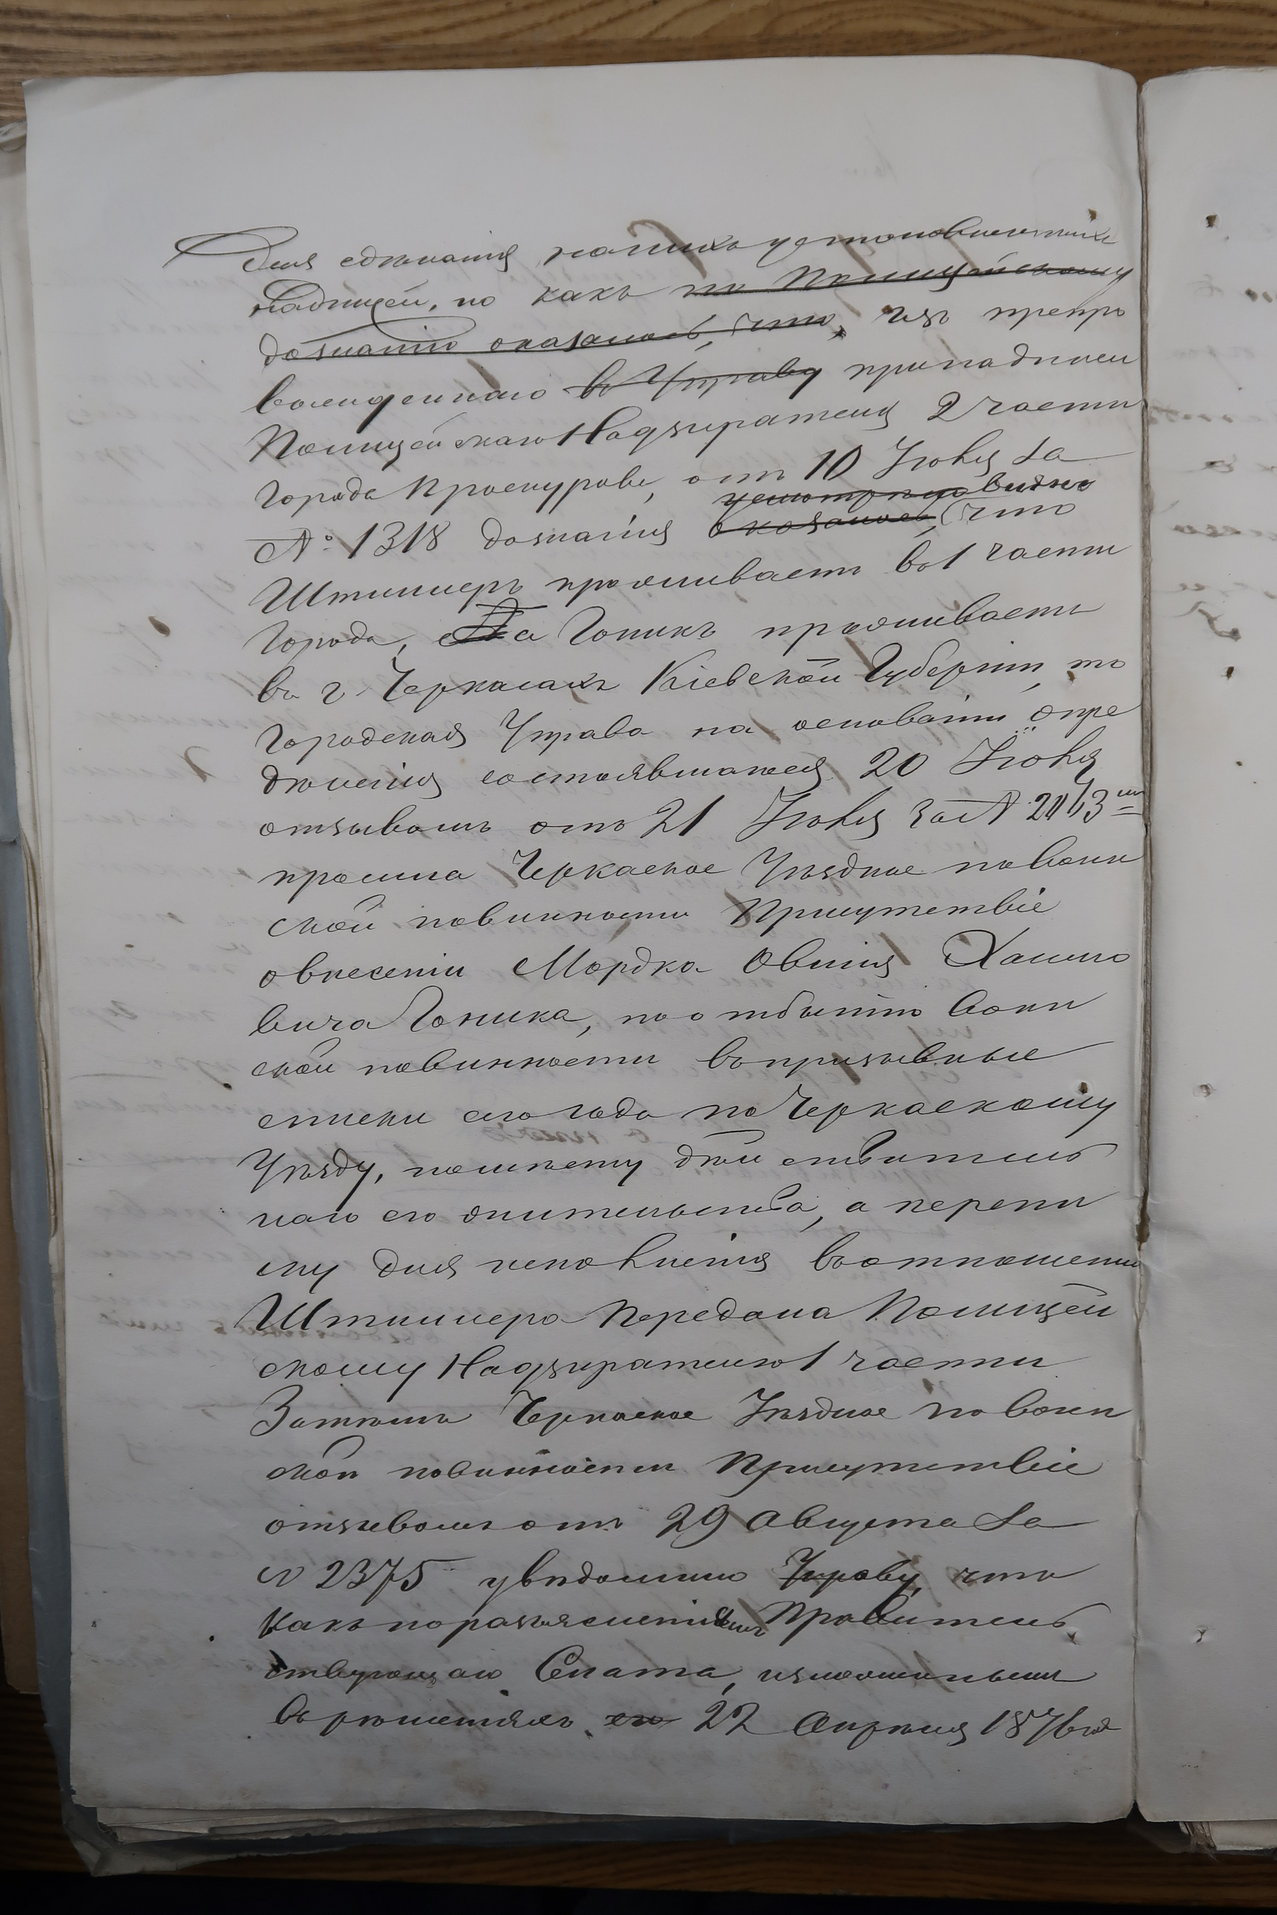 для сдѣланія на нихъ установленныхъ
надписей, но какъ по Полицейскому
дознанію оказалось, что, изъ препро
вожденнаго въ Управу при надписи
Полицейскаго Надзирателя 2 части
города Проскурова, отъ 10 Іюня за
усмотрѣно видно
№ 1318 дознанія оказалось, что
Штиллеръ проживаетъ въ 1 части
города, а Гоникъ проживаетъ
въ г. Черкасахъ Кіевской Губерніи, то
Городская Управа на основаніи опре
дѣленія состоявшагося 20 Іюня
отзывомъ отъ 21 Іюня за №
просила Черкаское Уѣздное по воин
ской повинности Присутствіе
о внесеніи Мордка Овшія Хаимо
вича Гоника, по отбытію воин
ской повинности въ призывные
списки сего года по Черкаскому
Уѣзду, по мѣсту дѣйствитель
наго его жительства, а перепи
ску для исполненія въ отношении
Штиллера передала Полицей
скому Надзирателю 1 части
Затѣмъ Черкаское Уѣздное по воин
ской повинности Присутствіе
отзывомъ отъ 29 Августа за
№ 2375 увѣдомило Управу, что
какъ по разъясненіямъ Правитель
ствующаго Сената, изложеннымъ
въ рѣшеніяхъ его 22 Апрѣля 1876 год